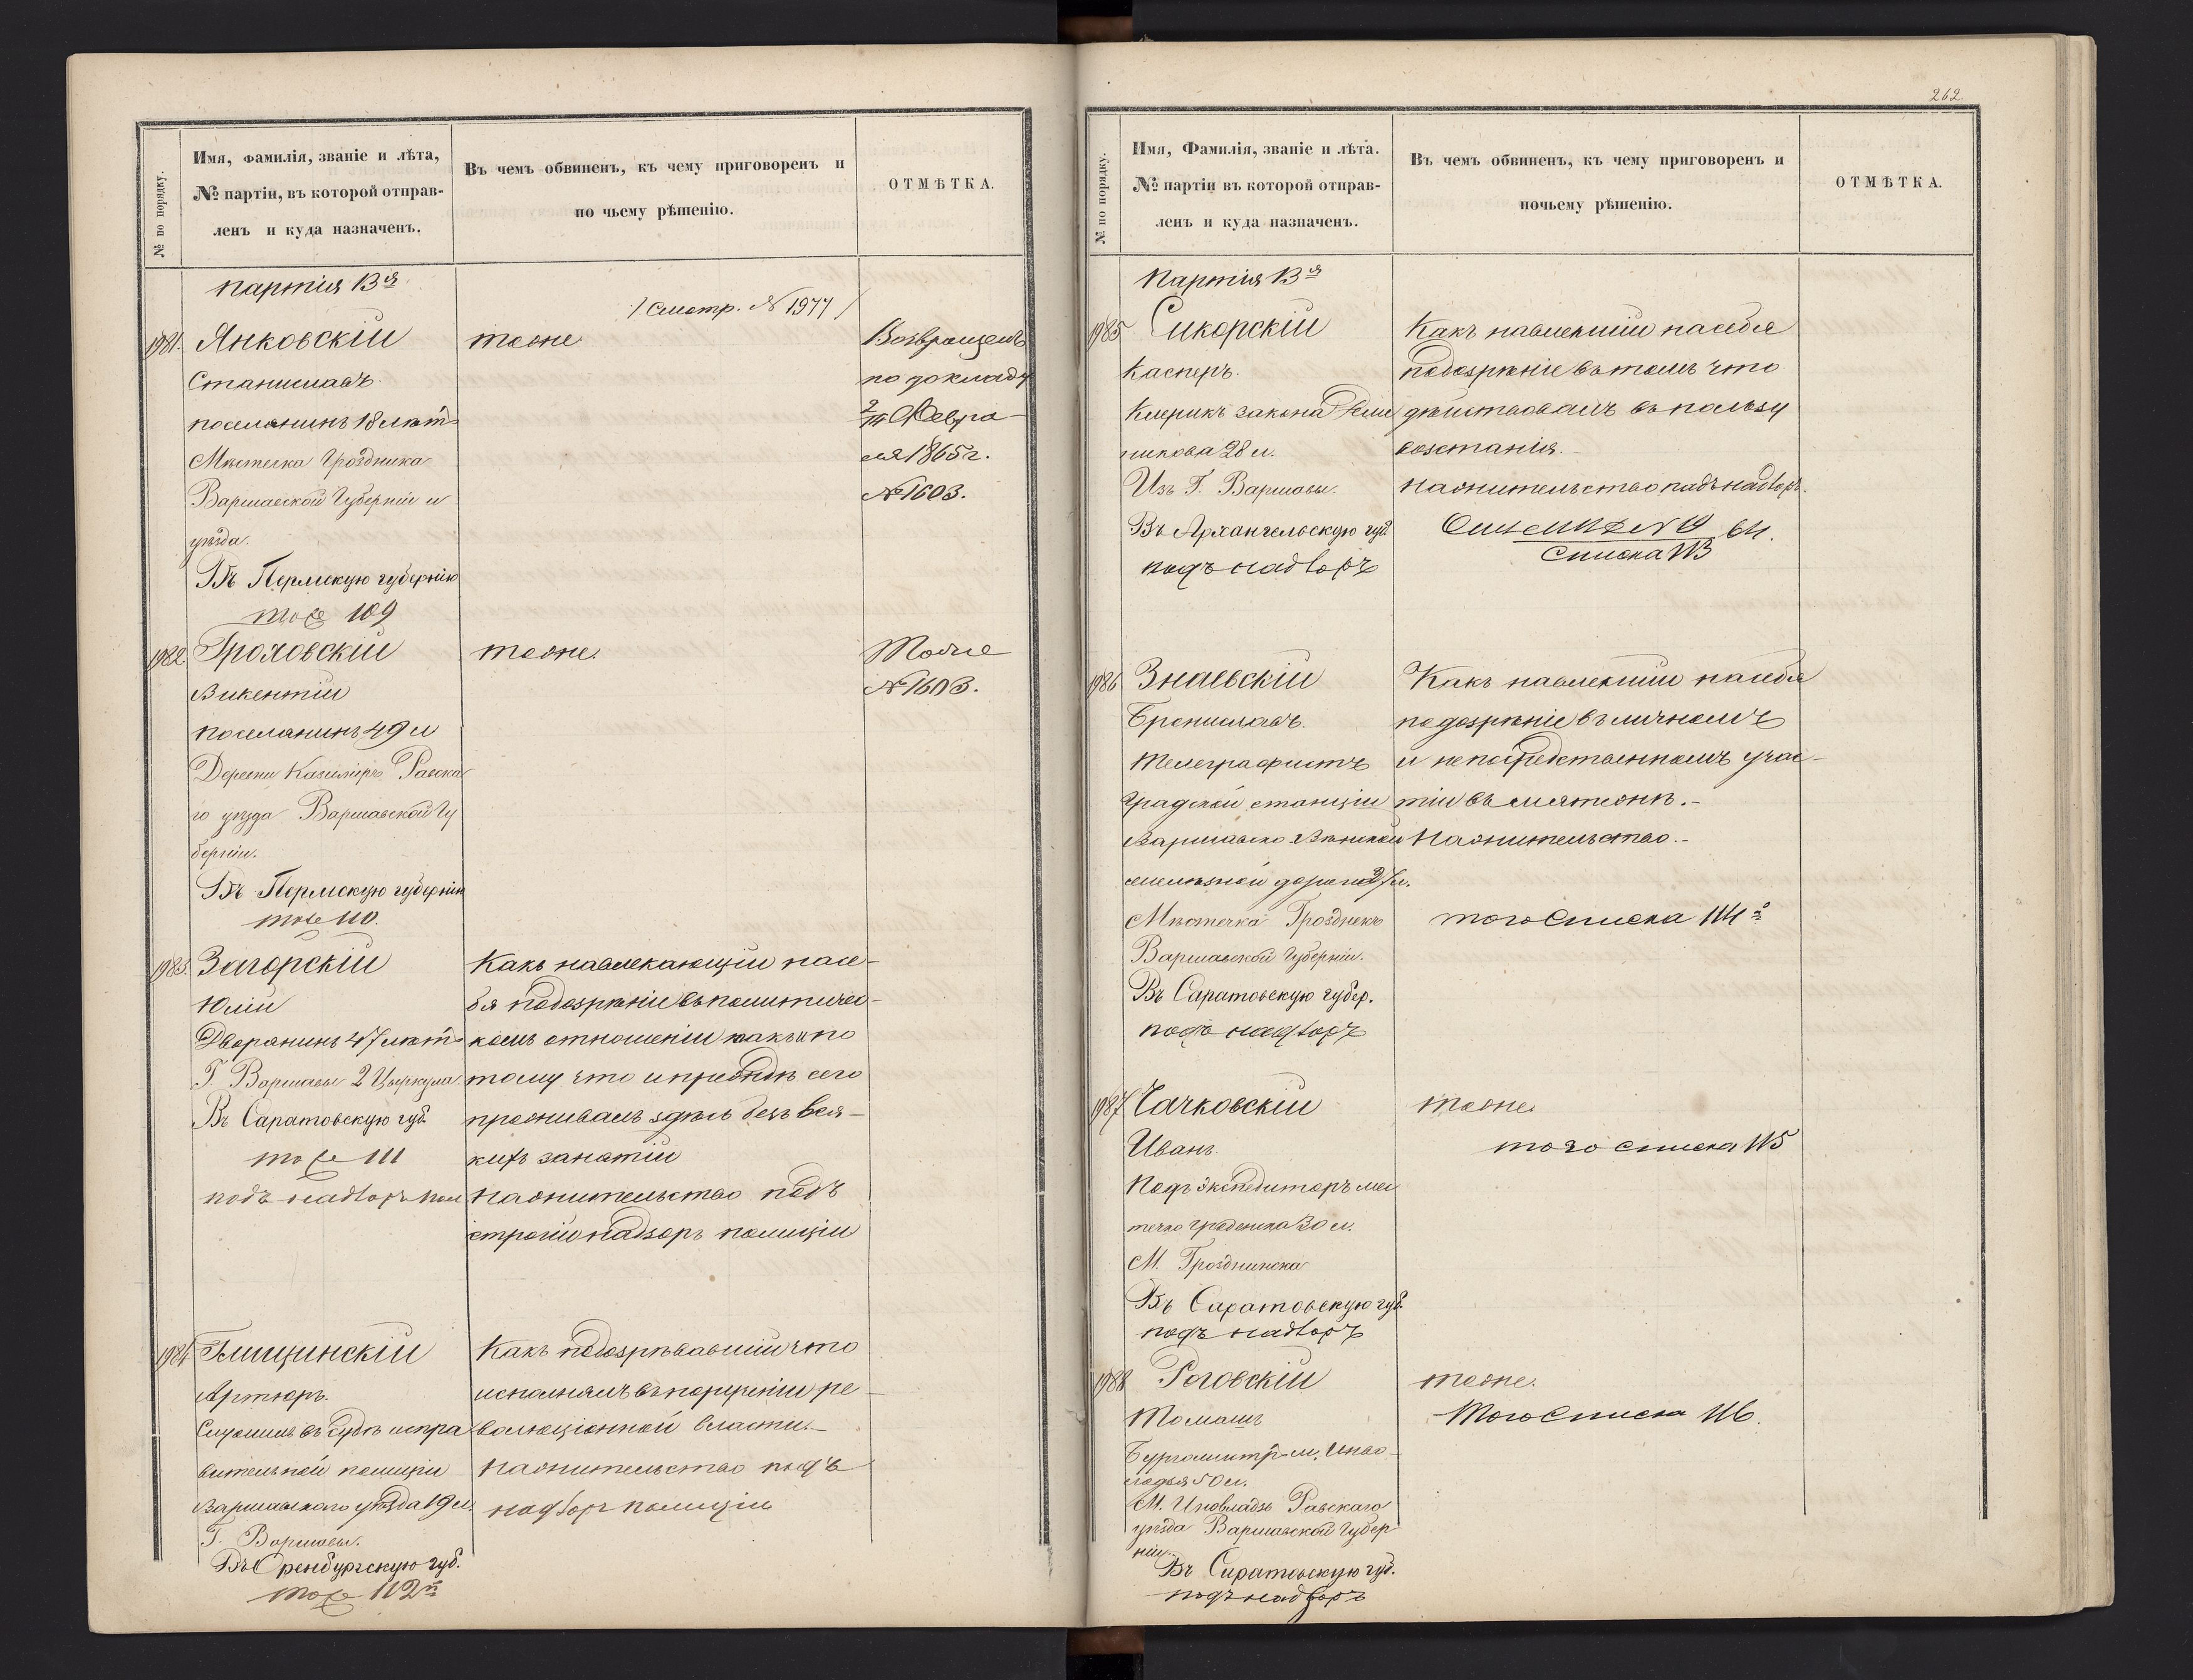 № по порядку.
Имя, фамилія, званіе и лѣта,
№ партіи, въ которой отправ-
ленъ и куда назначенъ.
Въ чемъ обвиненъ, къ чему приговоренъ и
по чьему рѣшенію.
ОТМѢТКА.
партія 13я
/Смотр. № 1977/
1981. Янковскій
Станиславъ.
поселянинъ 18 лѣтъ
Мѣстечка Гроздиска
Варшавской Губерніи и
уѣзда.
Въ Пермскую губернію
тоже 109
тоже
Возвращенъ
по докладу
2/14 Февра-
ля 1865 г.
№ 1603.
1982 Гроховскій
Викентій
поселянинъ 49 л
Деревни Казиміръ Равска
го уѣзда Варшавской Гу
берніи.
Въ Пермскую губернію
тоже 110.
тоже.
Тоже
№ 1603.
1983. Загорскій
Юлій
Дворянинъ 47 лѣтъ
Г Варшавы 2 Циркула.
Въ Саратовскую губ.
тоже 111
подъ надзоръ пол
Какъ навлекающій на се-
бя подозрѣніе въ политичес-
комъ отношеніи какъ и по
тому что и прежде сего
проживалъ здѣсь безъ вся-
кихъ занятій
На жительство подъ
строгій надзоръ полиціи
1984 Блищинскій
Артюръ.
Служилъ въ Судѣ испра
вительной полиціи
Варшавскаго уѣзда 19 л
Г. Варшавы.
Въ Оренбургскую губ.
тоже 112й
Какъ подозрѣвавшій что
исполнялъ порученіи ре-
волюціонной власти.-
На жительство подъ
надзоръ полиціи
262.
№ по порядку.
Имя, Фамилія, званіе и лѣта.
№ партіи въ которой отправ-
ленъ и куда назначенъ.
Въ чемъ обвиненъ, къ чему приговоренъ и
почьему рѣшенію.
ОТМѢТКА.
Партія 13я
1985 Сикорскій
Касперъ.
Клерикъ закона
28 л.
Изъ Г. Варшавы.
Въ Архангельскую губ.
подъ надзоръ
Какъ навлекшій на себя
подозрѣніе въ томъ что
дѣйствовалъ въ пользу
возстанія.
На жительство подъ надзоръ.
№ 19 64.
Списка 113
1986 Знаевскій
Брониславъ.
Телеграфистъ
Градской станціи
Варшавско-Вѣнской
желѣзной дороги 27 л.
Мѣстечка Гроздиекъ
Варшавской Губерніи.
Въ Саратовскую губер.
подъ надзоръ
Какъ навлекшій на себя
подозрѣніе въ личномъ
и непосредственномъ учас-
тіи въ мятежѣ.-
На жительство.-
того Списка 114й
1987 Чачковскій
Иванъ.
Подъ Экспедиторъ мѣс
30 л.
М. Гроздиска
Въ Саратовскую губ.
подъ надзоръ
тоже.
того списка 115
1988 Роговскій
Томашъ
Бургомистръ м. Инво-
лодзя 50 л.
М. Иновлодзь Равскаго
уѣзда Варшавской Губер
ніи.
Въ Саратовскую губ.
подъ надзоръ
тоже.
Того Списка 116.